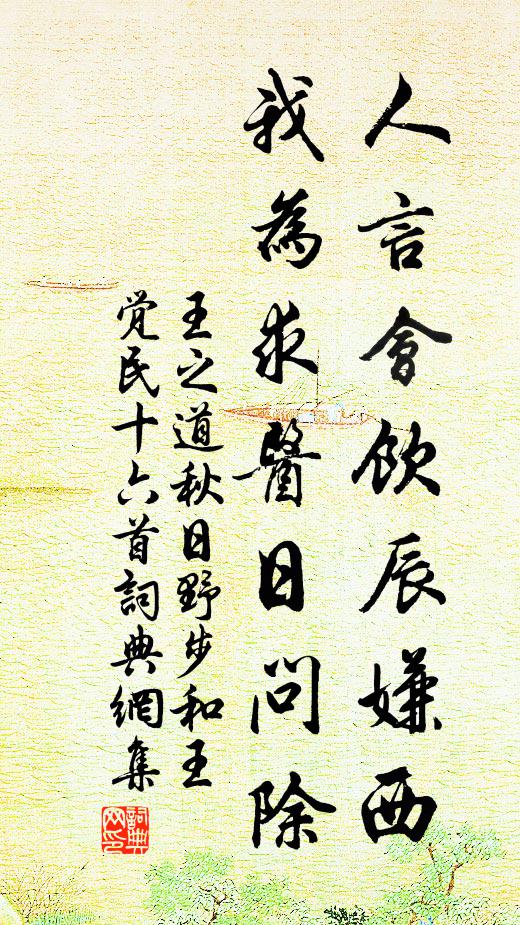 人言會飲辰嫌西
我為求醫日問除
王之道秋日野步和王
覺民十六首詞典網集
詞典
网印